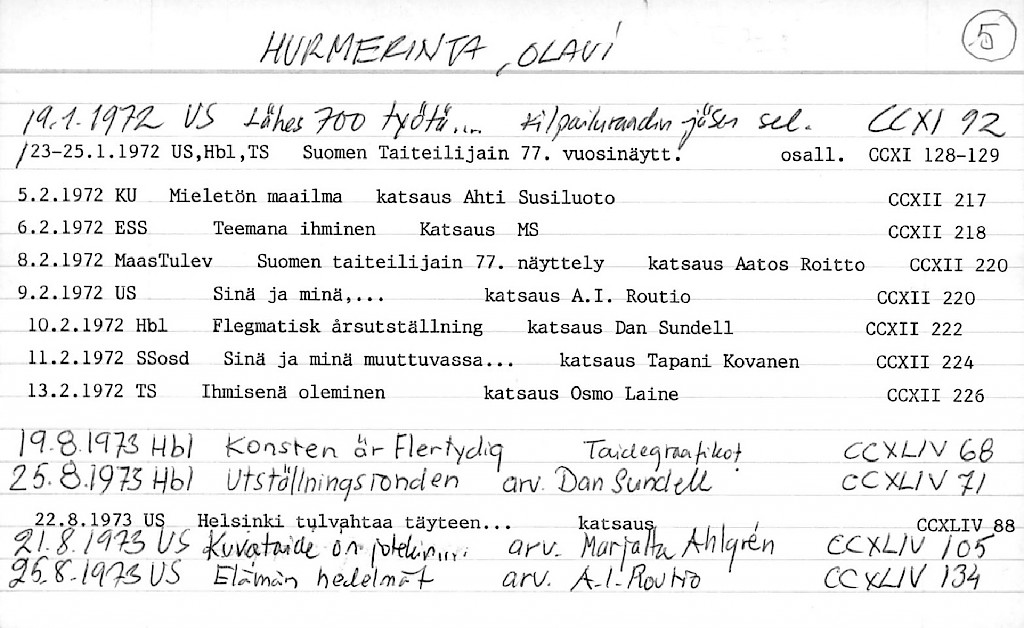 HURMERINTA, OLAVI
5
19.1.1972 US Lähes 700 työtä... kilpailuraadin jäsen sel. CCXI 92
/23-25.1.1972 US,Hbl,TS Suomen Taiteilijain 77. vuosinäytt. osall. CCXI 128-129
5.2.1972 KU Mieletön maailma katsaus Ahti Susiluoto CCXII 217
6.2.1972 ESS Teemana ihminen Katsaus MS CCXII 218
8.2.1972 MaasTulev Suomen taiteilijain 77. näyttely katsaus Aatos Roitto CCXII 220
9.2.1972 US Sinä ja minä,... katsaus A.I. Routio CCXII 220
10.2.1972 Hbl Flegmatisk årsutställning katsaus Dan Sundell CCXII 222
11.2.1972 SSosd Sinä ja minä muuttuvassa... katsaus Tapani Kovanen CCXII 224
13.2.1972 TS Ihmisenä oleminen katsaus Osmo Laine CCXII 226
19.8.1973 Hbl Konsten är Flertydig Taidegraafikot CCXLIV 68
25.8.1973 Hbl Utställningsronden arv. Dan Sundell CCXLIV 71
22.8.1973 US Helsinki tulvahtaa täyteen... katsaus CCXLIV 88
21.8.1973 US Kuvataide on jotekin.... arv. Marjatta Ahlgrén CCXLIV 105
26.8.1973 US Elämän hedelmät arv. A-I-Routio CCXLIV 134